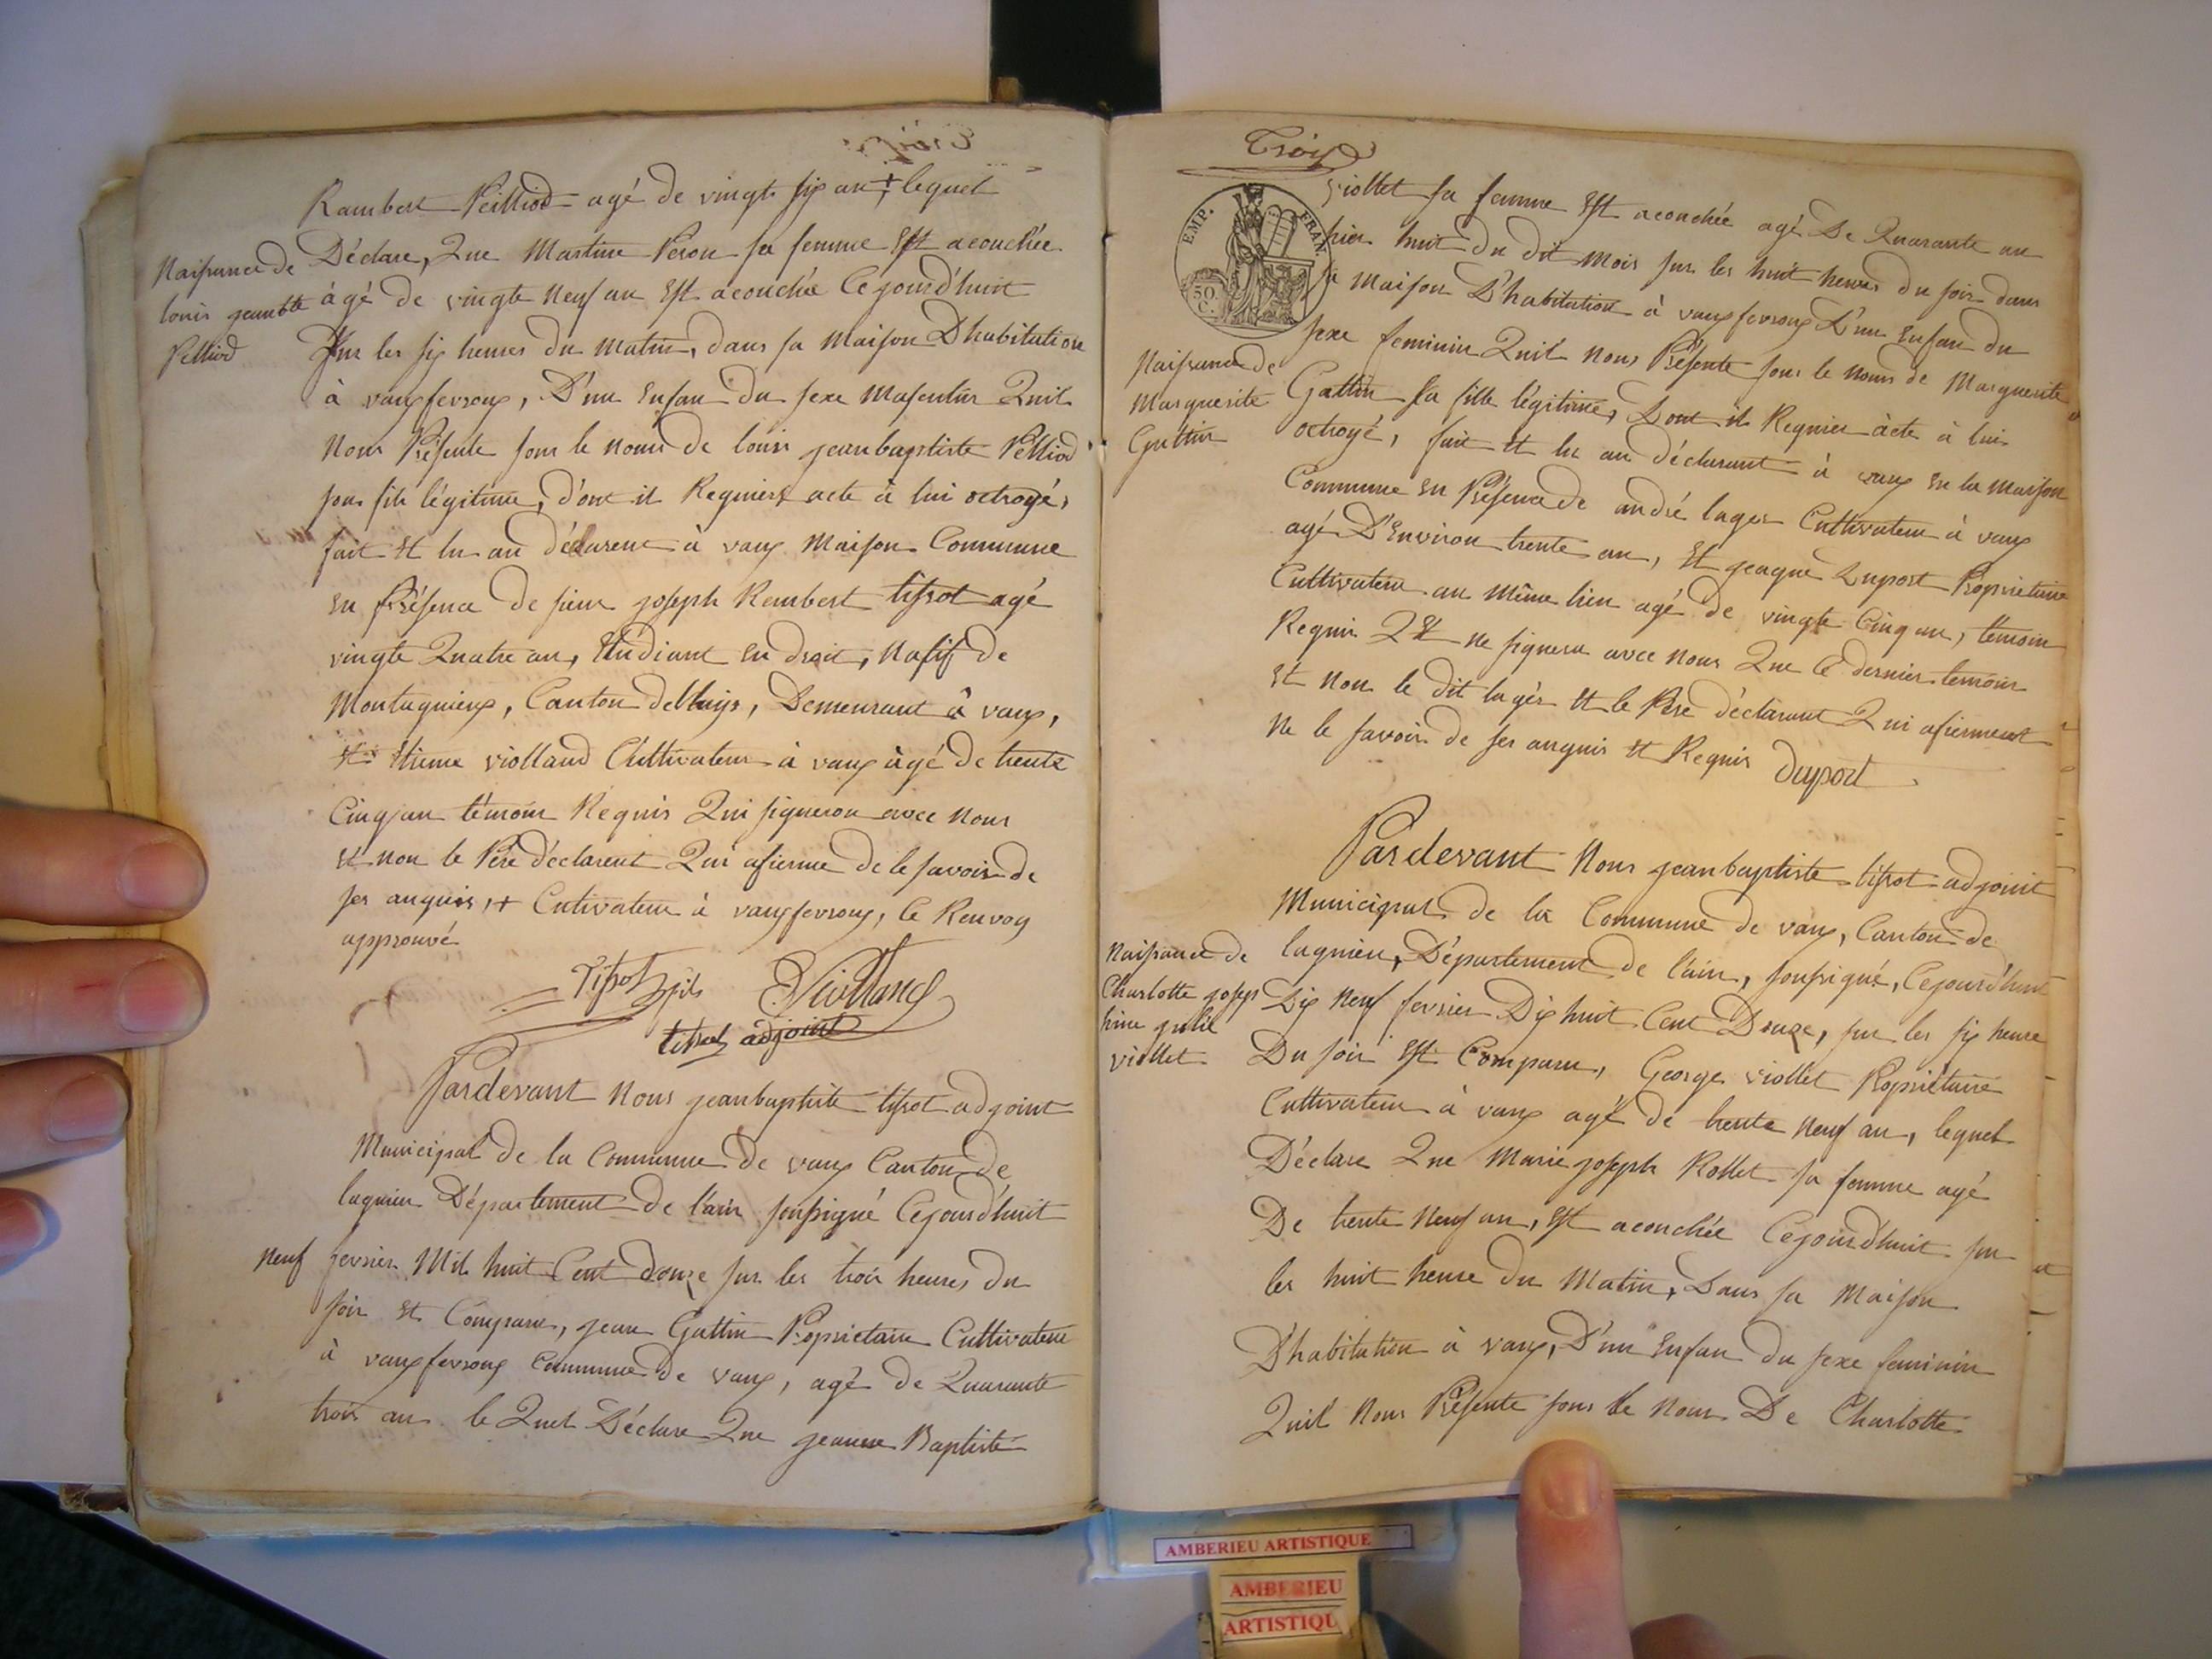 Rambert Peilliod agé de vingt six an + lequel
Déclare, Que Martine Peron sa femme Est acouchée
Naissance de
louis jeanbte
Pelliod
àgé de vingte neuf an Est acouchée Cejourd'huit
sur les six heures du matin, dans sa maison D'habitation
à vauxfevroux, D'un Enfan du sexe masculin Quil
nous Présente sous le nom de louis jeanbaptiste Pelliod
son fils légitime, d'ont il Requiert acte à lui octroyé,
fait Et lu au déclarent à vaux maison Commune
En Présence de sieur joseph Rembert tissot agé
vingte Quatre an, Etudiant En droit, natif de
Montagnieux, Canton de lhuys, Demeurant à vaux,
Et Etienne violland Cultivateur à vaux àgé de trente
Cinq an témoin Requis Qui signeron avec nous
Et non le Pére déclarent Qui afierme de le savoir de
ses anquis, + Cutivateur à vauxfevroux, le Renvoy
approuvé
Tissot fils EViolland
tissot adjoint
Pardevant nous jeanbaptiste tissot adjoint
Municipal de la Commune de vaux Canton de
lagnieu Département de l'ain soussigné Cejourd'huit
neuf fevrier Mil huit Cent douze sur les trois heures du
soir Et Comparu, jean Gattin Propriétaire Cultivateur
à vauxfevroux Commune de vaux, agé de Quarante
trois an le Quel Déclare Que jeanne Baptiste
Trois
EMP. FRAN.
50 C.
viollet sa femme Est acouchée agé De Quarante an
hier huit du dit mois sur les huit heures du soir dans
sa maison D'habitation à vauxfevroux D'un Enfan du
sexe feminin Quil nous Présente sous le nom de Marguerite
Naissance de
Marguerite
Gattin
Gattin sa fille légitime, Dont il Requier àcte à lui
octroyé, fait Et lu au déclarant à vaux En la maison
Commune En Présence de andré lager Cultivateur à vaux
agé D'Environ trente an, Et jeaque Duport Propriétaire
Cultivateur au même lieu agé de vingte Cinq an, témoin
Requis Q Et ne signera avec nous Que Ce dernier temoin
Et non le dit lagér Et le Pére déclarant Qui afierment
ne le savoir de ses anquis Et Requis duport
Pardevant Nous jeanbaptiste tissot adjoint
Municipal de la Commune de vaux, Canton de
Naissance de
Charlotte josep
hine julie
viollet
lagnieu, Département de l'ain, soussigné, Cejourd'huit
Dix neuf fevrier Dix huit Cent Douze, sur les six heure
Du soir Est Comparu, George viollet Propriétaire
Cultivateur à vaux agé de trente neuf an, lequel
Déclare Que Marie joseph Rollet sa femme agé
De trente neuf an, Est acouchée Cejourd'huit sur
les huit heure du Matin, Dans sa Maison
D'habitation à vaux, D'un Enfan du sexe feminin
Quil nous Présente sous le nom De Charlotte
AMBERIEU ARTISTIQUE
AMBERIEU
ARTISTIQU